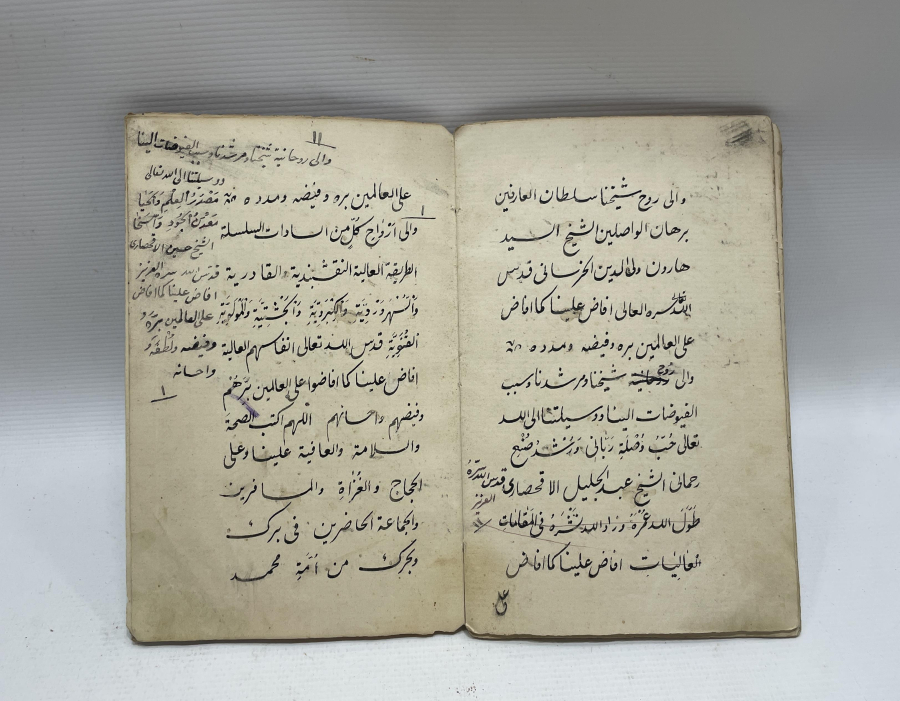 والى روح شيخنا سلطان العارفين
برهان الواصلين الشيخ السيد
هارون ولى الدين الخراسانى قدس
الله تعالى سره العالى افاض علينا كما افاض
على العالمين بره وفيضه ومدده
والى روح شيخنا ومرشدنا وسبب
الفيوضات الينا ووسيلتنا الى الله
تعالى حب وصلة ربانى ومرشد
رحمانى الشيخ عبد الجليل الاقحصارى
قدس الله سره
العزيز
طول الله عمره وزاد الله نشره فى المقامات
العاليات افاض علينا كما افاض
على
على العالمين بره وفيضه ومدده
والى ارواح كل من السادات السلسلة
الطريقة العالية النقشبندية القادرية
والسهروردية والكبروية والجشتية والمولوية
قدس الله تعالى انفاسهم العالية
افاض علينا كما افاضوا على العالمين برهم
وفيضهم واحسانهم اللهم اكتب الصحة
والسلامة والعافية علينا وعلى
الحجاج والغزاة والمسافرين
والجماعة الحاضرين فى برك
وبحرك من امة محمد
١١
والى روحانية شيخنا ومرشدنا وسبب الفيوضات الينا
ووسيلتنا الى الله تعالى
مصدر العلم والحيا
معدن الجود والسخا
الشيخ حسين الاقحصارى
قدس الله سره العزيز
افاض علينا كما افاض
على العالمين بره
وفيضه ولطفه
واحسانه
١